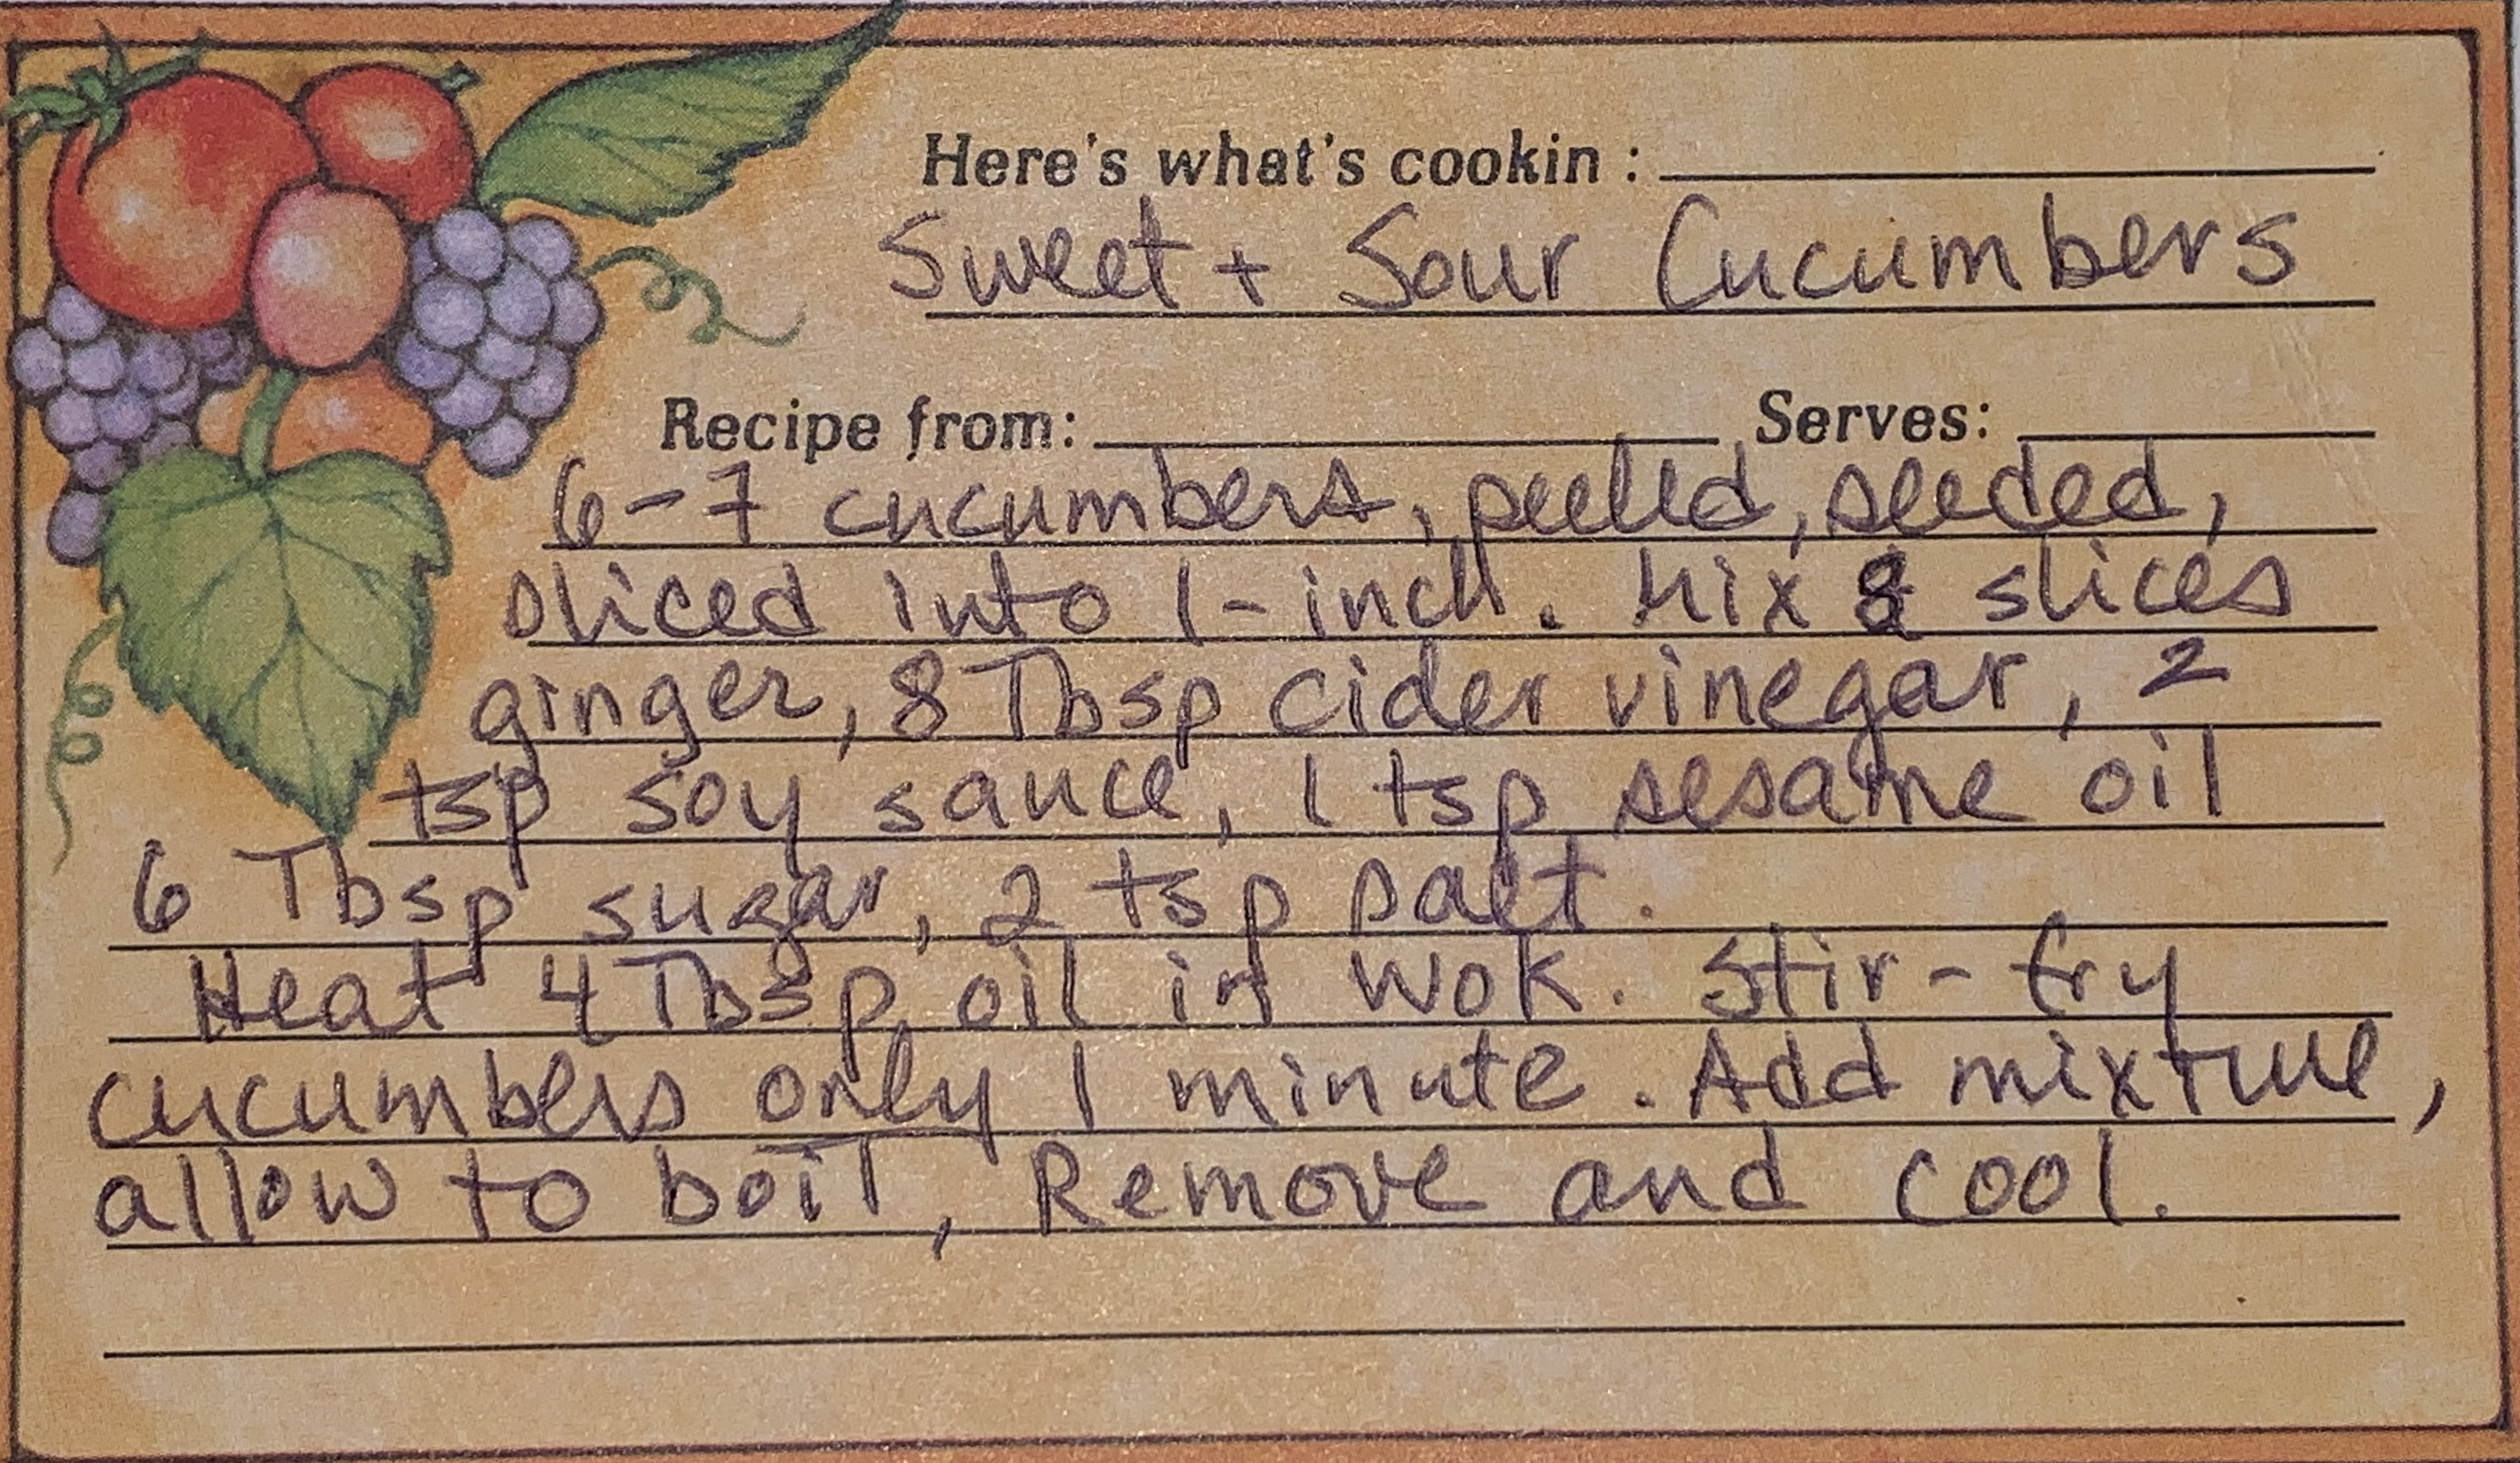 Here's what's cookin :
Sweet + Sour Cucumbers
Recipe from: Serves:
6-7 cucumbers, peeled, seeded,
sliced into 1-inch. Mix 8 slices
ginger, 8 Tbsp cider vinegar, 2
tsp soy sauce, 1 tsp sesame oil
6 Tbsp sugar, 2 tsp salt.
Heat 4 Tbsp oil in wok. Stir-fry
cucumbers only 1 minute. Add mixture,
allow to boil, Remove and cool.